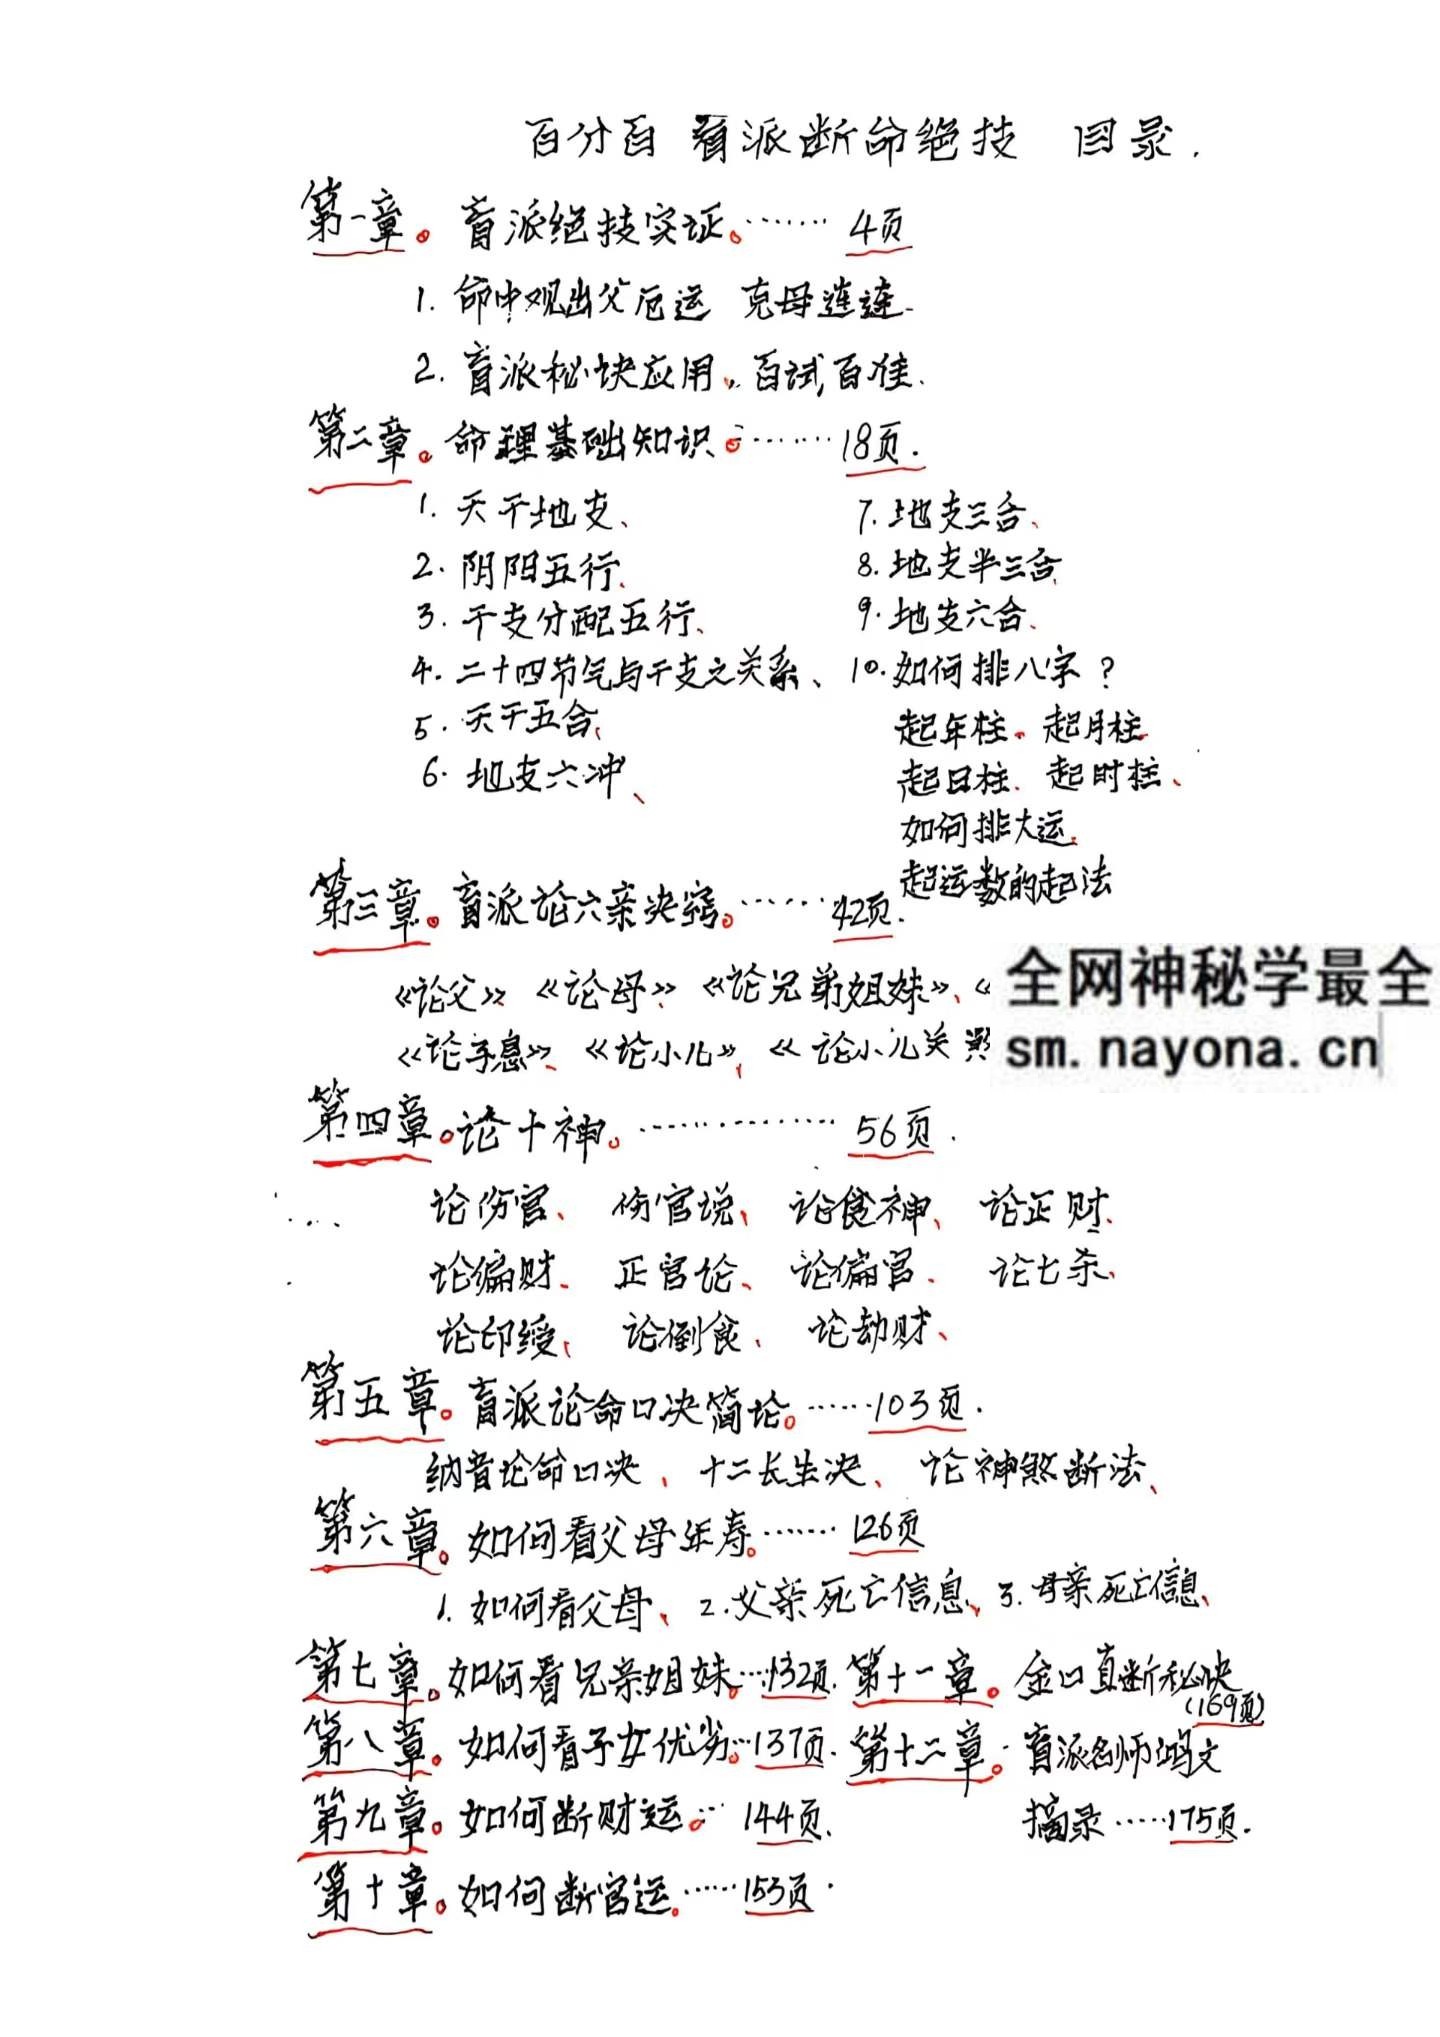 百分百 盲派断命绝技 目录.
第一章。盲派绝技实证。······· 4页
1. 命中观出父厄运 克母连连.
2. 盲派秘诀应用，百试百准.
第二章。命理基础知识。······· 18页.
1. 天干地支、
2. 阴阳五行、
3. 干支分配五行、
4. 二十四节气与干支之关系、
5. 天干五合、
6. 地支六冲、
7. 地支三合、
8. 地支半三合
9. 地支六合、
10. 如何排八字?
起年柱、起月柱
起日柱、起时柱、
如何排大运、
起运数的起法
第三章。盲派论六亲决窍。······ 42页.
《论父》、《论母》、《论兄弟姐妹》、《
《论子息》、《论小儿》、《论小儿关煞
全网神秘学最全
sm.nayona.cn
第四章。论十神。·············· 56页.
论伤官、 伤官说、 论食神、 论正财、
论偏财、 正官论、 论偏官、 论七杀、
论印绶、 论倒食、 论劫财、
第五章。盲派论命口决简论。······103页.
纳音论命口决、十二长生决、论神煞断法、
第六章。如何看父母年寿。······ 126页
1. 如何看父母、2. 父亲死亡信息、3. 母亲死亡信息、
第七章。如何看兄亲姐妹。···132页.
第八章。如何看子女优劣。···137页.
第九章。如何断财运。··· 144页.
第十章。如何断官运。······153页.
第十一章。金口直断秘诀
(169页)
第十二章。盲派名师鸿文
摘录······175页.